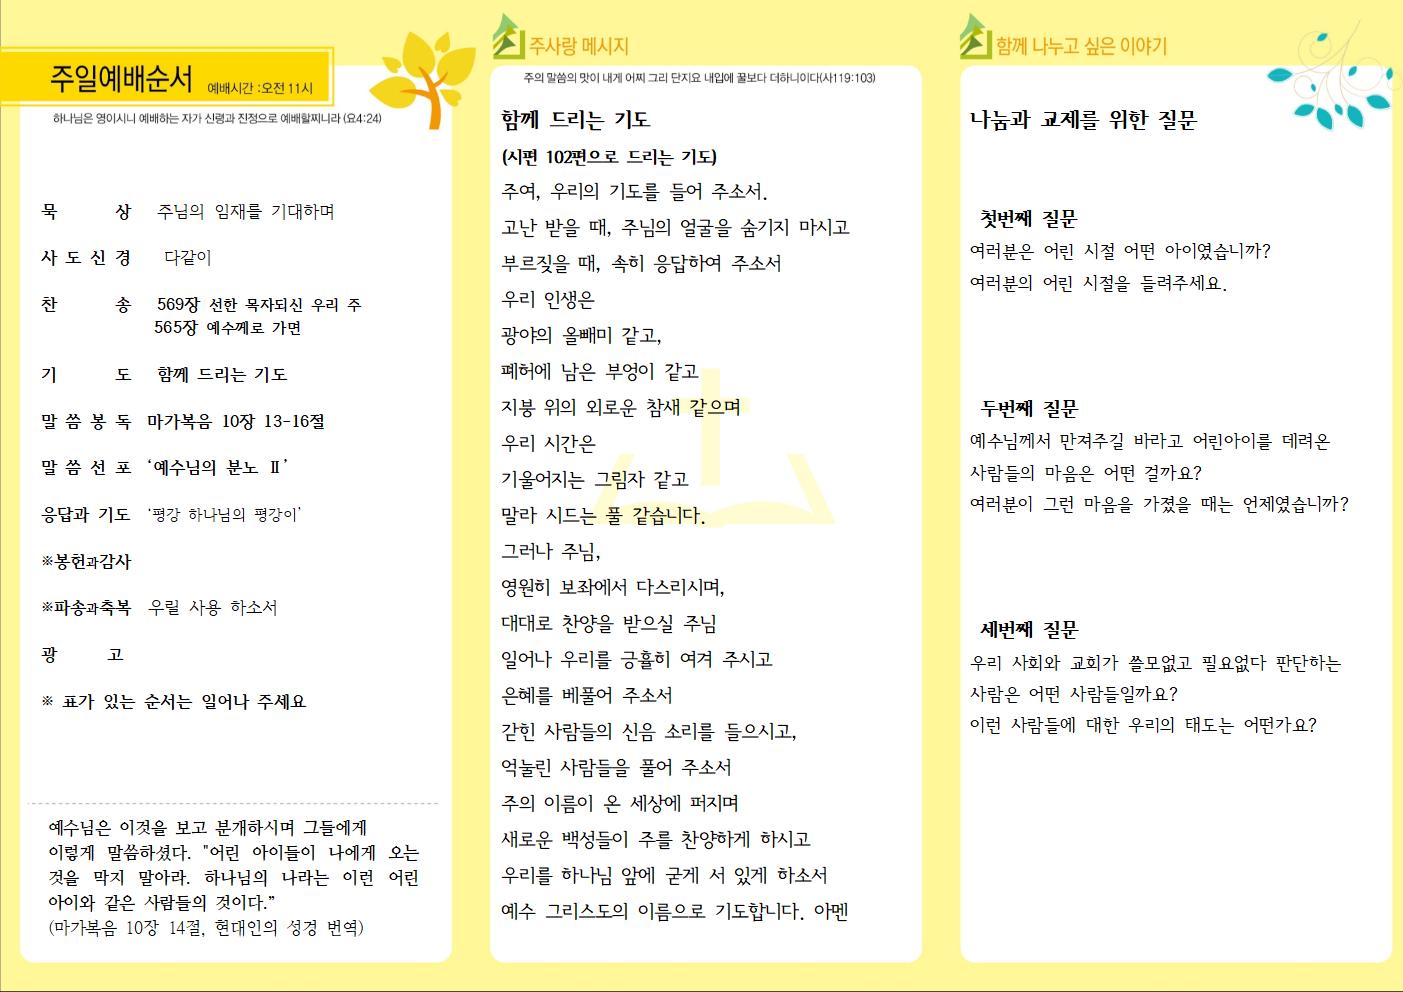 주일예배순서 예배시간 :오전 11시
하나님은 영이시니 예배하는 자가 신령과 진정으로 예배할찌니라 (요4:24)
묵 상 주님의 임재를 기대하며
사 도 신 경 다같이
찬 송 569장 선한 목자되신 우리 주
565장 예수께로 가면
기 도 함께 드리는 기도
말 씀 봉 독 마가복음 10장 13-16절
말 씀 선 포 ‘예수님의 분노 Ⅱ’
응답과 기도 ‘평강 하나님의 평강이’
※봉헌과감사
※파송과축복 우릴 사용 하소서
광 고
※ 표가 있는 순서는 일어나 주세요
예수님은 이것을 보고 분개하시며 그들에게
이렇게 말씀하셨다. "어린 아이들이 나에게 오는
것을 막지 말아라. 하나님의 나라는 이런 어린
아이와 같은 사람들의 것이다.”
(마가복음 10장 14절, 현대인의 성경 번역)
주사랑 메시지
주의 말씀의 맛이 내게 어찌 그리 단지요 내입에 꿀보다 더하니이다(사119:103)
함께 드리는 기도
(시편 102편으로 드리는 기도)
주여, 우리의 기도를 들어 주소서.
고난 받을 때, 주님의 얼굴을 숨기지 마시고
부르짖을 때, 속히 응답하여 주소서
우리 인생은
광야의 올빼미 같고,
폐허에 남은 부엉이 같고
지붕 위의 외로운 참새 같으며
우리 시간은
기울어지는 그림자 같고
말라 시드는 풀 같습니다.
그러나 주님,
영원히 보좌에서 다스리시며,
대대로 찬양을 받으실 주님
일어나 우리를 긍휼히 여겨 주시고
은혜를 베풀어 주소서
갇힌 사람들의 신음 소리를 들으시고,
억눌린 사람들을 풀어 주소서
주의 이름이 온 세상에 퍼지며
새로운 백성들이 주를 찬양하게 하시고
우리를 하나님 앞에 굳게 서 있게 하소서
예수 그리스도의 이름으로 기도합니다. 아멘
함께 나누고 싶은 이야기
나눔과 교제를 위한 질문
첫번째 질문
여러분은 어린 시절 어떤 아이였습니까?
여러분의 어린 시절을 들려주세요.
두번째 질문
예수님께서 만져주길 바라고 어린아이를 데려온
사람들의 마음은 어떤 걸까요?
여러분이 그런 마음을 가졌을 때는 언제였습니까?
세번째 질문
우리 사회와 교회가 쓸모없고 필요없다 판단하는
사람은 어떤 사람들일까요?
이런 사람들에 대한 우리의 태도는 어떤가요?